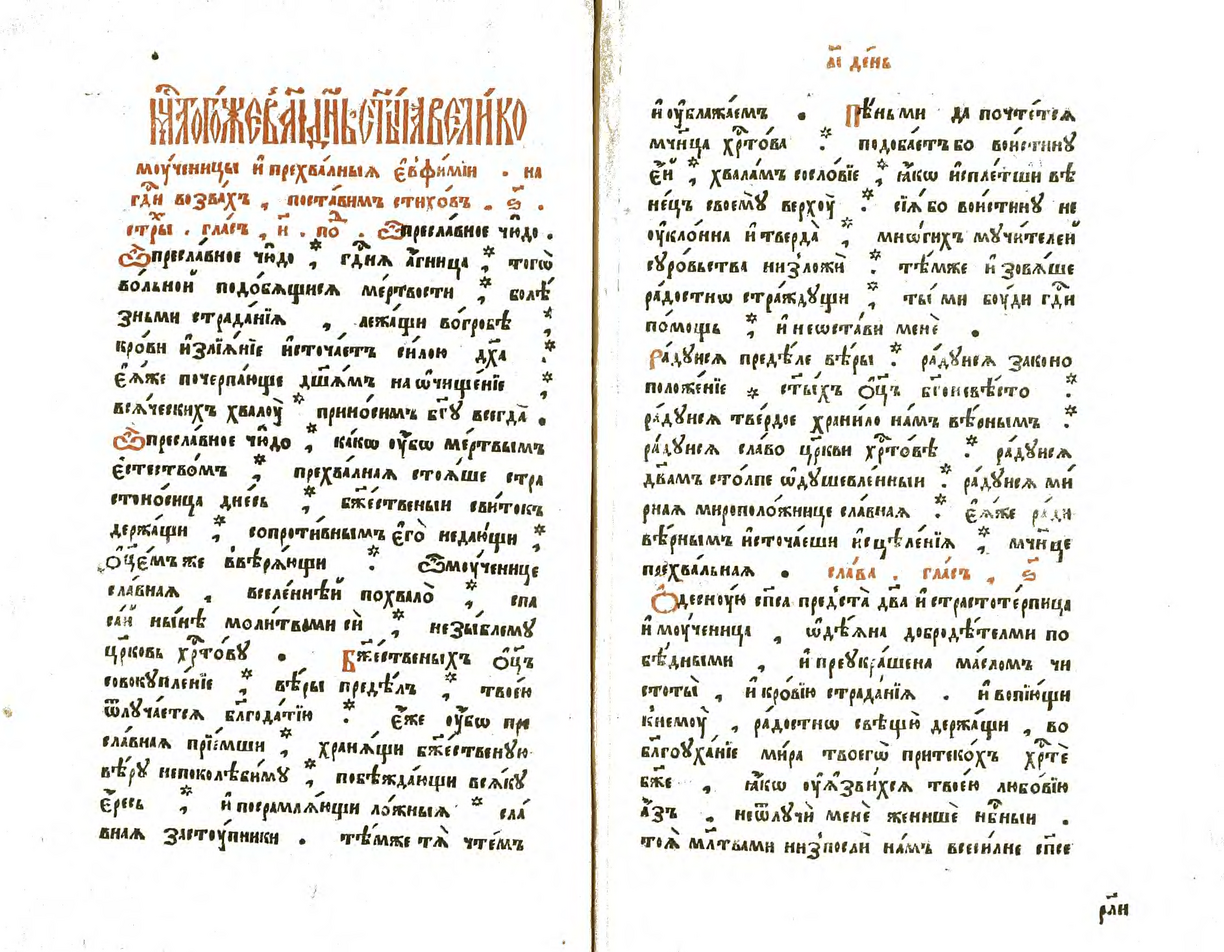 мⷭ҇ѧ тогѡ́же в҃аі дн҃ь ст҃ы́ѧ вели́ко
моу́ченицы и҆ прехва́лныѧ є҆вѳи́мїи . на
гдⷭ҇и возва́хъ , поста́вимъ стихо́въ . ѕ҃ .
стры́ . гла́съ , и҃ . поⷣ . Ѽ пресла́вное чю́до .
Ѽ пресла́вное чю́до ⁏ гдⷭ҇нѧ а҆́гница ⁏ того̀
во́льнои подо́бѧщисѧ ме́ртвости ⁏ болѣ́
зньми страда́нїѧ , лежа́щи во́гробѣ ⁏
кро́ви и҆злїѧ́нїе и҆сточа́етъ си́лою дх҃а ⁏
є҆ѧ́же почерпа́юще дш҃а́мъ на ѡ҆чище́нїе ⁏
всѧ́ческихъ хвалоу̀ ⁏ прино́симъ бг҃ꙋ всегда̀ .
Ѽ пресла́вное чю́до ⁏ ка́кѡ ᲂу҆́бѡ ме́ртвымъ
є҆стество́мъ ⁏ прехва́лнаѧ стоѧ́ше стра
стоно́сица дне́сь ⁏ бж҃е́ственыи сви́токъ
держа́щи ⁏ сопроти́внымъ є҆го̀ недаю́щи ⁏
ѻ҆ц҃е́мъ же ввѣрѧ́ющи ⁏ Ѽ моу́ченице
сла́внаѧ , вселе́ннѣй похвало̀ ⁏ спа
са́й ны́нѣ моли́твами сѝ ⁏ незы́блемꙋ
цр҃ковь хрⷭ҇то́вꙋ . Бж҃е́ственыхъ ѻ҆ц҃ъ
совокꙋпле́нїе ⁏ вѣ́ры предѣ́лъ ⁏ твое́ю
ѿлꙋча́етсѧ блг҃ода́тїю ⁏ є҆́же ᲂу҆́бѡ пре
сла́внаѧ прїе́мши ⁏ хранѧ́щи бж҃е́ственꙋю
вѣ́рꙋ непоколѣби́мꙋ ⁏ побѣжда́ющи всѧ́кꙋ
є҆́ресь ⁏ и҆ посрамлѧ́ющи ло́жныѧ ⁏ сла́
внаѧ застоу́пники . тѣ́мже тѧ̀ чте́мъ
а҃і де́нь
и҆ ᲂу҆блажа́емъ . Пѣ́ньми да почте́тсѧ
мч҃ница хрⷭ҇то́ва ⁏ подоба́етъ бо вои́стинꙋ
є҆́й ⁏ хвала́мъ сосло́вїе ⁏ ꙗ҆́кѡ и҆спле́тши вѣ
не́цъ своемꙋ̀ верхоу̀ ⁏ сїѧ́ бо вои́стинꙋ не
ᲂу҆кло́нна и҆ тверда̀ ⁏ мно́гихъ мꙋчи́телей
сꙋро́вьства низложѝ ⁏ тѣ́мже и҆ зовѧ́ше
ра́достнѡ стра́ждꙋщи ⁏ ты́ ми боу́ди гдⷭ҇и
по́мощь ⁏ и҆ неѡста́ви менѐ .
Ра́дꙋисѧ преде́ле вѣ́ры ⁏ ра́дꙋисѧ законо
положе́нїе ⁏ ст҃ы́хъ ѻ҆ц҃ъ бг҃оневѣ́сто ⁏
ра́дꙋисѧ тве́рдое храни́ло на́мъ вѣ́рнымъ ⁏
ра́дꙋисѧ сла́во цр҃кви хрⷭ҇то́вѣ ⁏ ра́дꙋисѧ
два́мъ сто́лпе ѡ҆дꙋшевле́нныи ⁏ ра́дꙋисѧ ми́
рнаѧ мироположнице сла́внаѧ ⁏ є҆ѧ́же ра́ди
вѣ́рнымъ и҆сточа́еши и҆сцѣле́нїѧ ⁏ мч҃нице
прехва́льнаѧ . сла́ва . гла́съ , ѕ҃
Ѻ҆деснꙋ́ю сп҃са предста̀ дв҃а и҆ страстоте́рпица
и҆ моу́ченица , ѡ҆дѣ́ѧна добродѣ́телми по
бѣ́дными , и҆ преукра́шена ма́сломъ чи
стоты̀ , и҆ кро́вїю страда́нїѧ . и҆ вопїю́щи
к немоу̀ , ра́достнѡ свѣщю̀ держа́щи , во
благоуха́нїе ми́ра твоегѡ̀ притеко́хъ хрⷭ҇тѐ
бж҃е , ꙗ҆́кѡ ᲂу҆ѧзви́хсѧ твое́ю любо́вїю
а҆́зъ . неѿлꙋчѝ менѐ женишѐ нбⷭ҇ныи .
тоѧ̀ мл҃твами низпослѝ на́мъ всеси́лне сп҃се
рл҃и